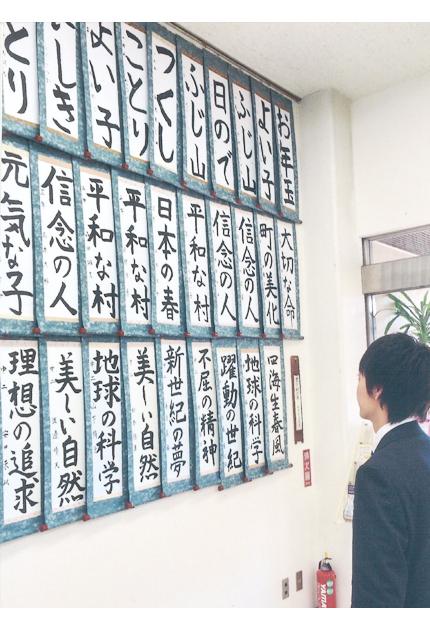 お年玉
よい子
ふじ山
日ので
ふじ山
つくし
ことり
よい子
しき
とり
大切な命
町の美化
信念の人
信念の人
平和な村
日本の春
平和な村
平和な村
信念の人
元気な子
四海生春風
地球の科学
躍動の世紀
不屈の精神
新世紀の夢
美しい自然
地球の科学
美しい自然
理想の追求
消火器
YAMA